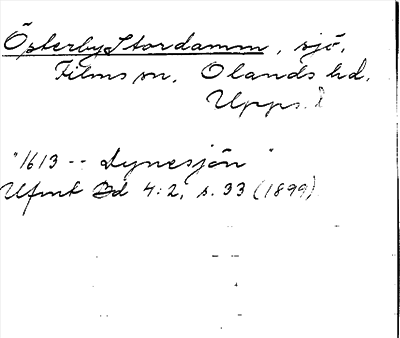 Österby Stordamm, sjö.
Films sn. Olands hd.
Upps. l
"1613 -- Dynesjön"
Ufmt Bd 4:2, s. 33 (1899)